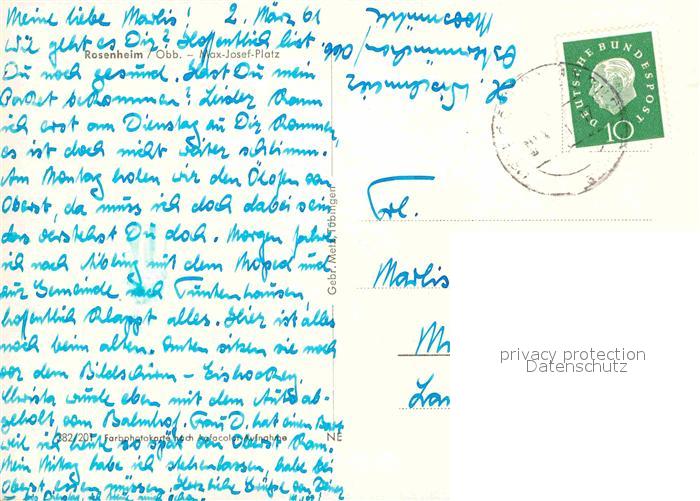 Meine liebe Marlis! 2. März 61
Wie geht es Dir? Hoffentlich bist
Rosenheim / Obb. – Max-Josef-Platz
Du noch gesund. Hast Du mein
Paket bekommen? Leider kann
ich erst am Dienstag zu Dir kommen,
es ist doch nicht weiter schlimm.
Am Montag holen wir den Ölofen von
Oberst, da muss ich doch dabei sein
das verstehst Du doch. Morgen fahre
ich nach Aibling mit dem Moped und
zur Gemeinde nach Tuntenhausen,
hoffentlich klappt alles. Hier ist alles
noch beim alten. Unten sitzen sie noch
vor dem Bildschirm – Eishockey.
Christa wurde eben mit dem Auto ab-
geholt vom Bahnhof. Frau D. hat einen
382/201 Farbphotokarte nach Agfacolor-Aufnahme
weil ich heute so spät von Oberst kam.
Mein Mittag habe ich stehenlassen, habe bei
Oberst essen müssen. Herzliche Grüße von
Gebr. Metz, Tübingen
NE
DEUTSCHE BUNDESPOST
10
Frl.
Marlis
privacy protection
Datenschutz